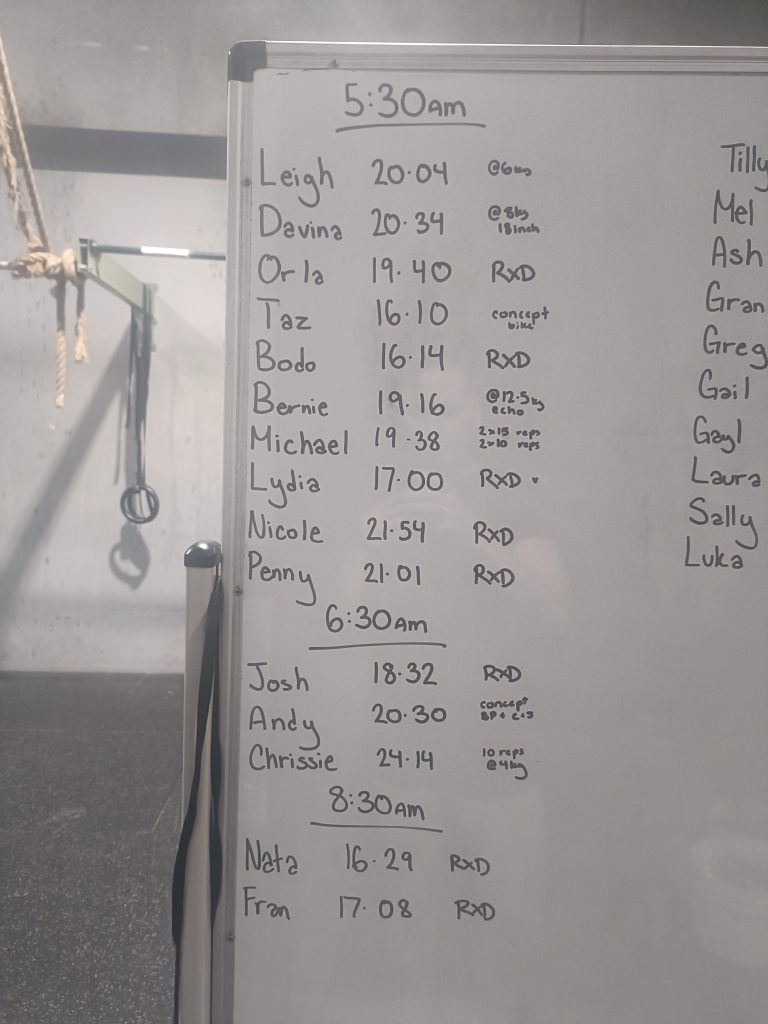 5:30am
Leigh 20.04 @6kg
Davina 20.34 @8kg
18inch
Orla 19.40 RxD
Taz 16.10 concept
bike
Bodo 16.14 RxD
Bernie 19.16 @12.5kg
echo
Michael 19.38 2x15 reps
2x10 reps
Lydia 17.00 RxD
Nicole 21.54 RxD
Penny 21.01 RxD
6:30am
Josh 18.32 RxD
Andy 20.30 concept
BP+ C+J
Chrissie 24.14 10 reps
@4kg
8:30am
Nata 16.29 RxD
Fran 17.08 RxD
Tilly
Mel
Ash
Gran
Greg
Gail
Gayl
Laura
Sally
Luka